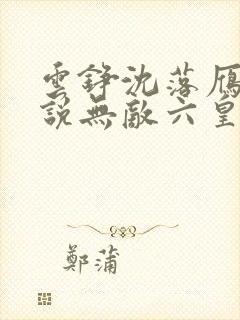 雲錚沈落雁
說無敵六皇
鄭蒲